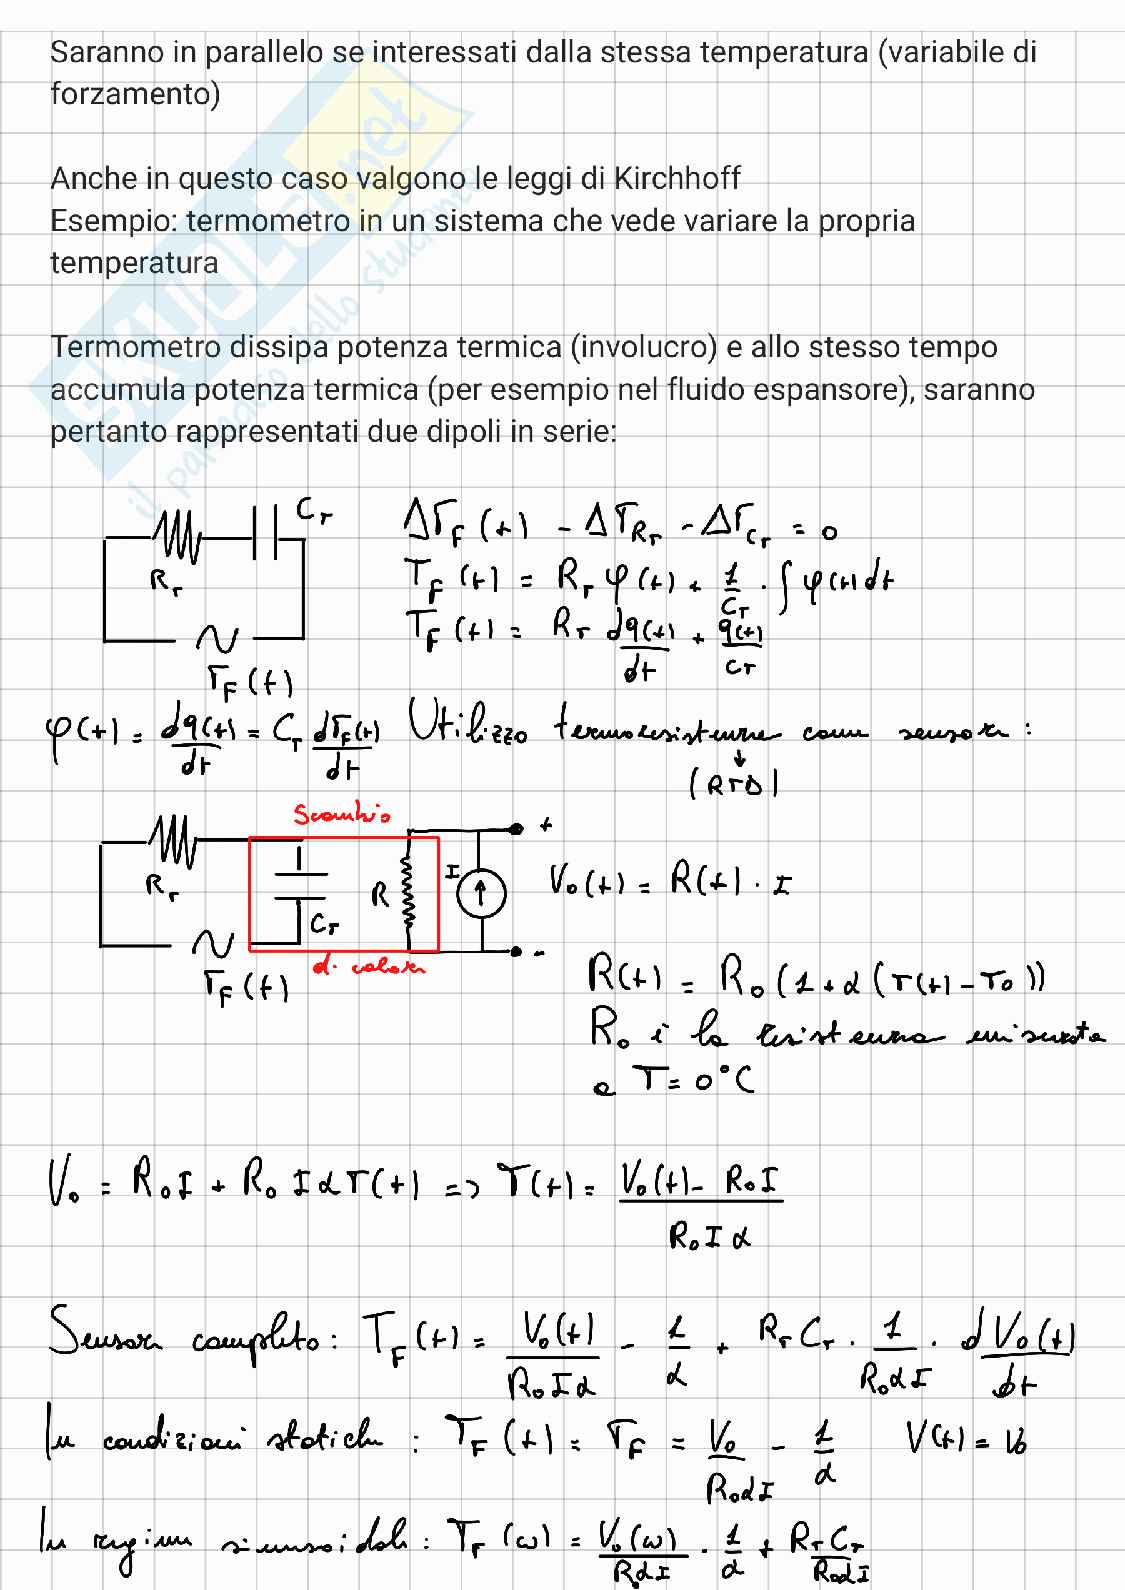 Saranno in parallelo se interessati dalla stessa temperatura (variabile di
forzamento)
Anche in questo caso valgono le leggi di Kirchhoff
Esempio: termometro in un sistema che vede variare la propria
temperatura
Termometro dissipa potenza termica (involucro) e allo stesso tempo
accumula potenza termica (per esempio nel fluido espansore), saranno
pertanto rappresentati due dipoli in serie:
SKUOLA.net
il paradiso dello studente
C_T
R_T
T_F(t)
ΔT_F(t) - ΔT_{R_T} - ΔT_{C_T} = 0
T_F(t) = R_T φ(t) + 1/C_T · ∫ φ(t) dt
T_F(t) = R_T dq(t)/dt + q(t)/C_T
φ(t) = dq(t)/dt = C_T dT_F(t)/dt Utilizzo termoresistenze come sensore:
↓
(RTD)
Scambio
R_T
C_T
R
I
+
-
T_F(t)
di calore
V_0(t) = R(t) · I
R(t) = R_0 (1 + α (T(t) - T_0))
R_0 è la resistenza misurata
a T = 0°C
V_0 = R_0 I + R_0 I α T(t) => T(t) = (V_0(t) - R_0 I)/(R_0 I α)
Sensore completo: T_F(t) = V_0(t)/(R_0 I α) - 1/α + R_T C_T · 1/(R_0 α I) · dV_0(t)/dt
In condizioni statiche: T_F(t) = T_F = V_0/(R_0 α I) - 1/α V(t) = V_0
In regime sinusoidale: T_F(ω) = V_0(ω)/(R_0 α I) · 1/α + R_T C_T/(R_0 α I)